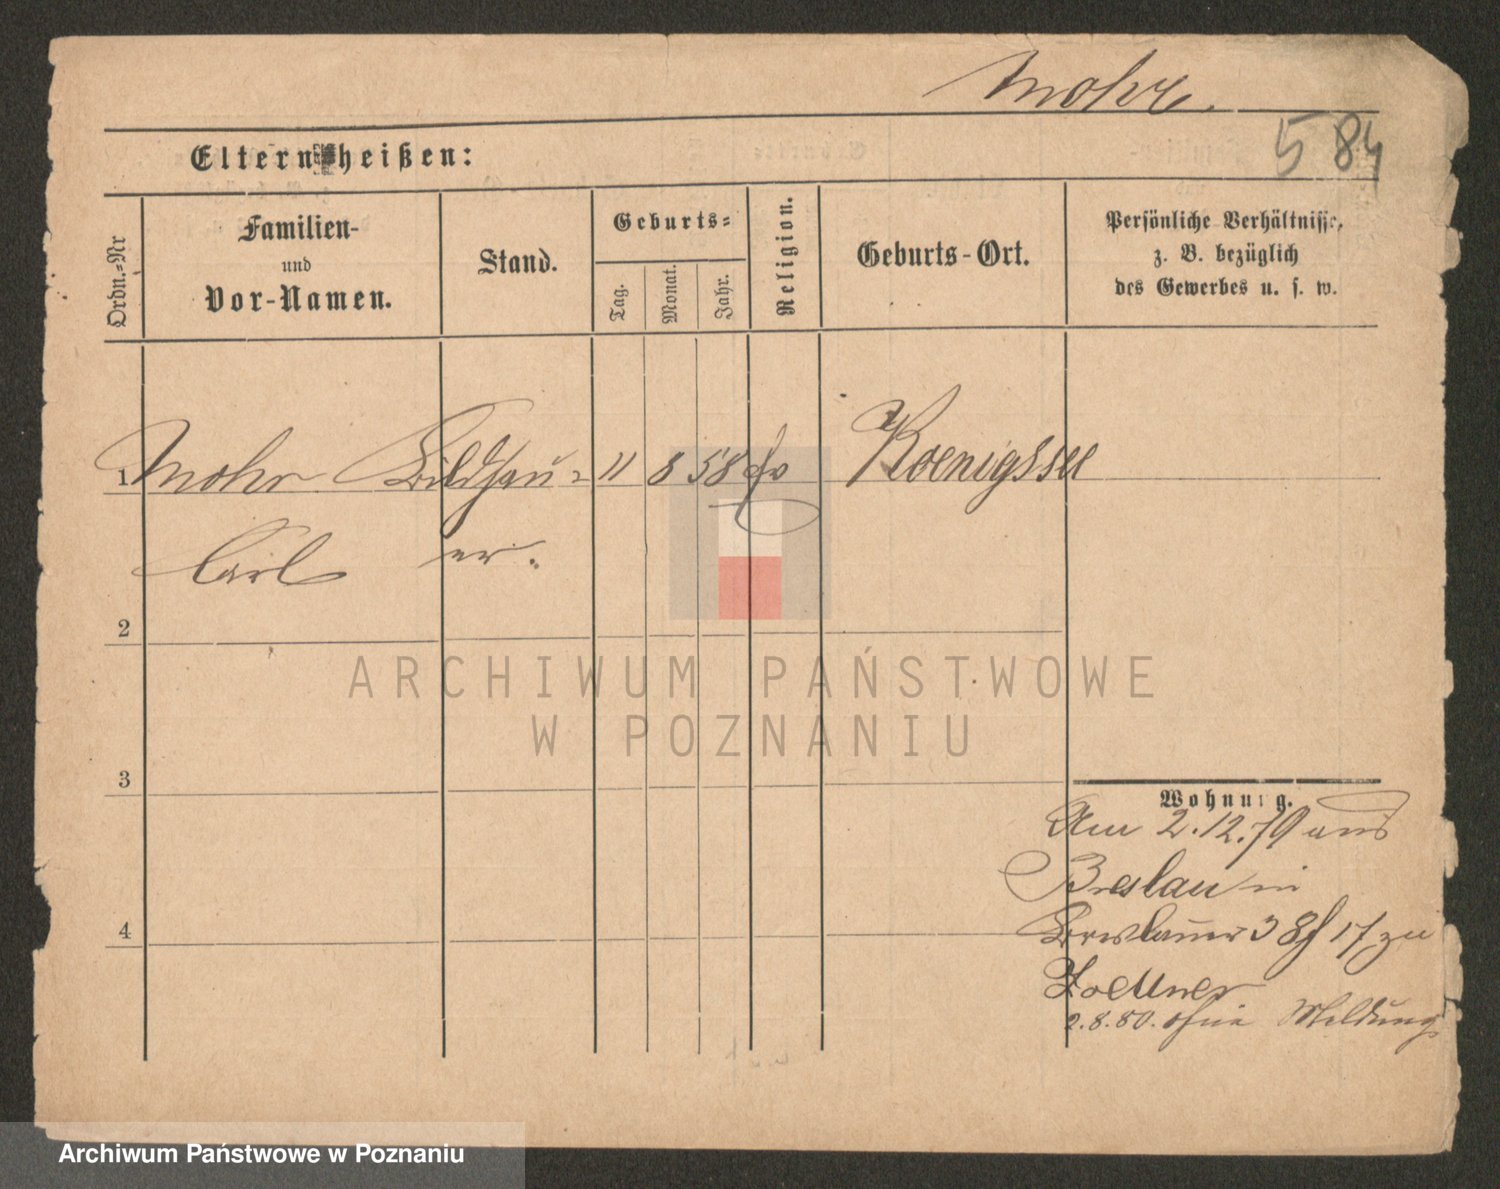 Mohr.
584
Eltern heißen:
Ordn.=Nr
Familien-
und
Vor-Namen.
Stand.
Geburts=
Tag.
Monat.
Jahr.
Religion.
Geburts-Ort.
Persönliche Verhältnisse,
z. B. bezüglich
des Gewerbes u. s. w.
1 Mohr Bildhau= 11 8 58 Koenigssee
Carl er.
2
3
4
Wohnung.
Am 2.12.79 aus
Breslau in
Breslauer 38/17 zu
2.8.80. ohne Meldung
ARCHIWUM PAŃSTWOWE
W POZNANIU
Archiwum Państwowe w Poznaniu